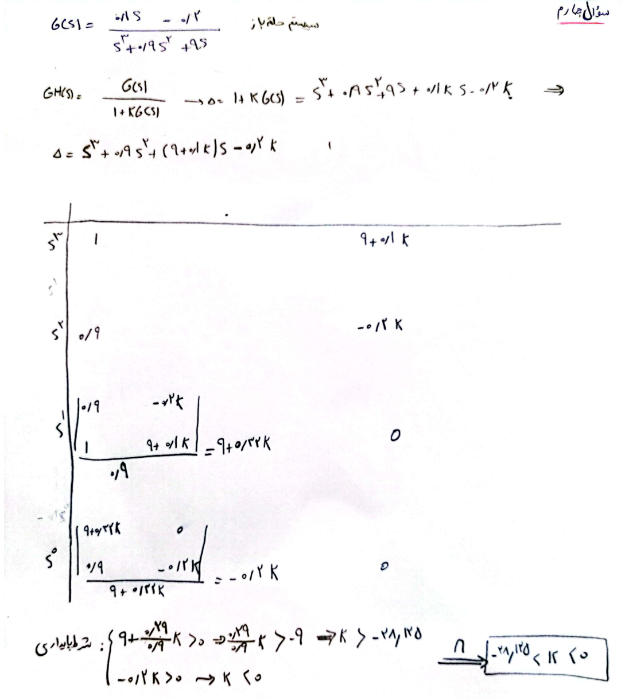 سوال چهارم
G(s) = (۰/۱s − ۰/۲) / (s^۳ + ۰/۹s^۲ + ۹s) سیستم حلقه باز
GH(s) = G(s) / (1 + KG(s)) → Δ = 1 + KG(s) = s^۳ + ۰/۹s^۲ + ۹s + ۰/۱ks − ۰/۲k ⇒
Δ = s^۳ + ۰/۹s^۲ + (۹ + ۰/۱k)s − ۰/۲k
s^۳ | 1 ۹ + ۰/۱k
s^۲ | ۰/۹ −۰/۲k
s^۱ | |۰/۹ −۰/۲k ; 1 ۹ + ۰/۱k| / ۰/۹ = ۹ + ۰/۳۲k 0
s^۰ | |۹ + ۰/۳۲k ۰ ; ۰/۹ −۰/۲k| / ۹ + ۰/۳۲k = −۰/۲k 0
شرط پایداری : { ۹ + (۰/۲۹/۰/۹)k > ۰ ⇒ (۰/۲۹/۰/۹)k > −۹ ⇒ k > −۲۸,۱۲۵
−۰/۲k > ۰ → k < ۰
∩ ⇒ −۲۸,۱۲۵ < k < ۰